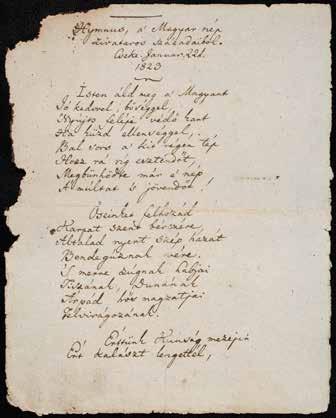 Hymnus, a' Magyar nép
zivataros századaiból.
Cseke. Januar. 22d.
1823
Isten áldd meg a' Magyart
Jó kedvvel, bőséggel,
Nyújts feléje védő kart
Ha küzd ellenséggel,
Bal sors a' kit régen tép
Hozz rá víg esztendőt,
Megbűnhődte már e' nép
A' múltat 's jövendőt!
Őseinket felhozád
Kárpát szent bérczére,
Általad nyert szép hazát
Bendegúznak vére.
'S merre zúgnak habjai
Tiszának, Dunának
Árpád hős magzatjai
Felvirágozának.
Értünk Kunság mezején
Ért kalászt lengettél,